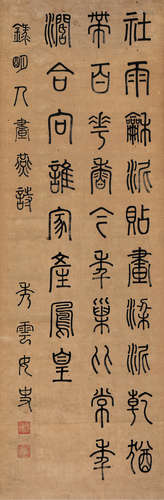 社雨龢泥貼畫梁泥乾猶
帶百華香今年巢比常年
濶合向誰家產鳳皇
錄明人畫燕詩
秀雲女史